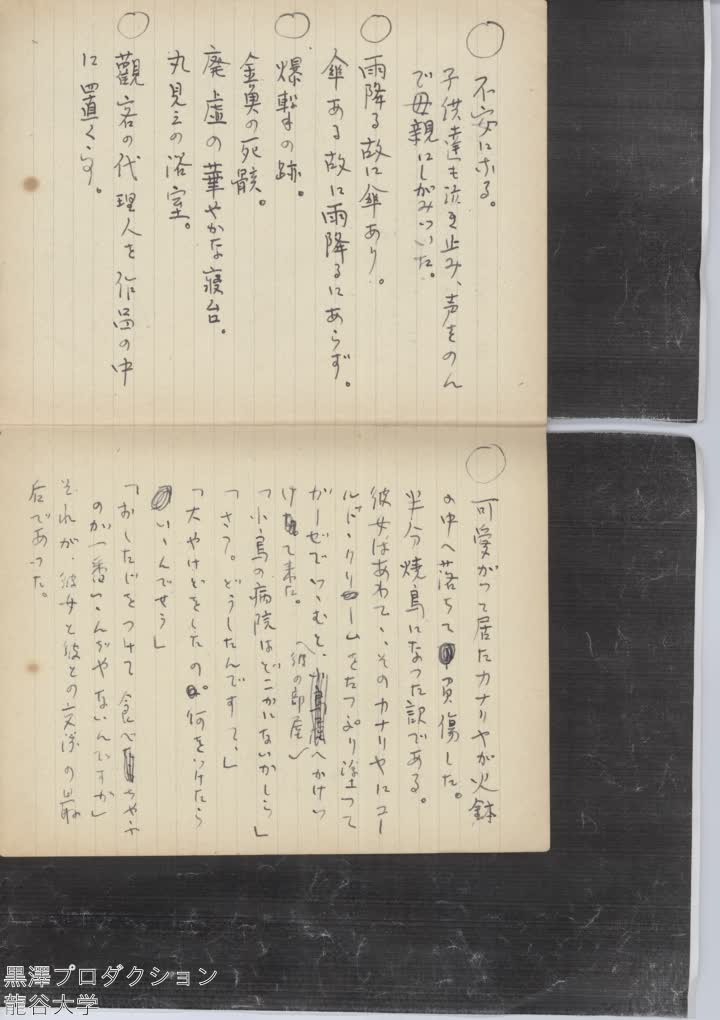 ○
不安になる。
子供達も泣き止み、声をのん
で母親にしがみついた。
○
雨降る故に傘あり。
傘ある故に雨降るにあらず。
○
爆撃の跡。
金魚の死骸。
廃虚の華やかな寝台。
丸見えの浴室。
○
觀客の代理人を作品の中
に置く事。
○
可愛がつて居たカナリヤが火鉢
の中へ落ちて負傷した。
半分焼鳥になつた訳である。
彼女はあわてゝそのカナリヤにコー
ルド・クリームをたつぷり塗つて
ガーゼでつゝむと、へかけつ
（彼の部屋）
けて来た。
「小鳥の病院はどこかにないかしら」
「さア。どうしたんですて、」
「大やけどをしたの。何をつけたら
いゝんでせう」
「おしたじをつけて食べちやふ
のが一番いゝんぢやないんですか」
それが、彼女と彼との交際の最
后であつた。
黒澤プロダクション
龍谷大学